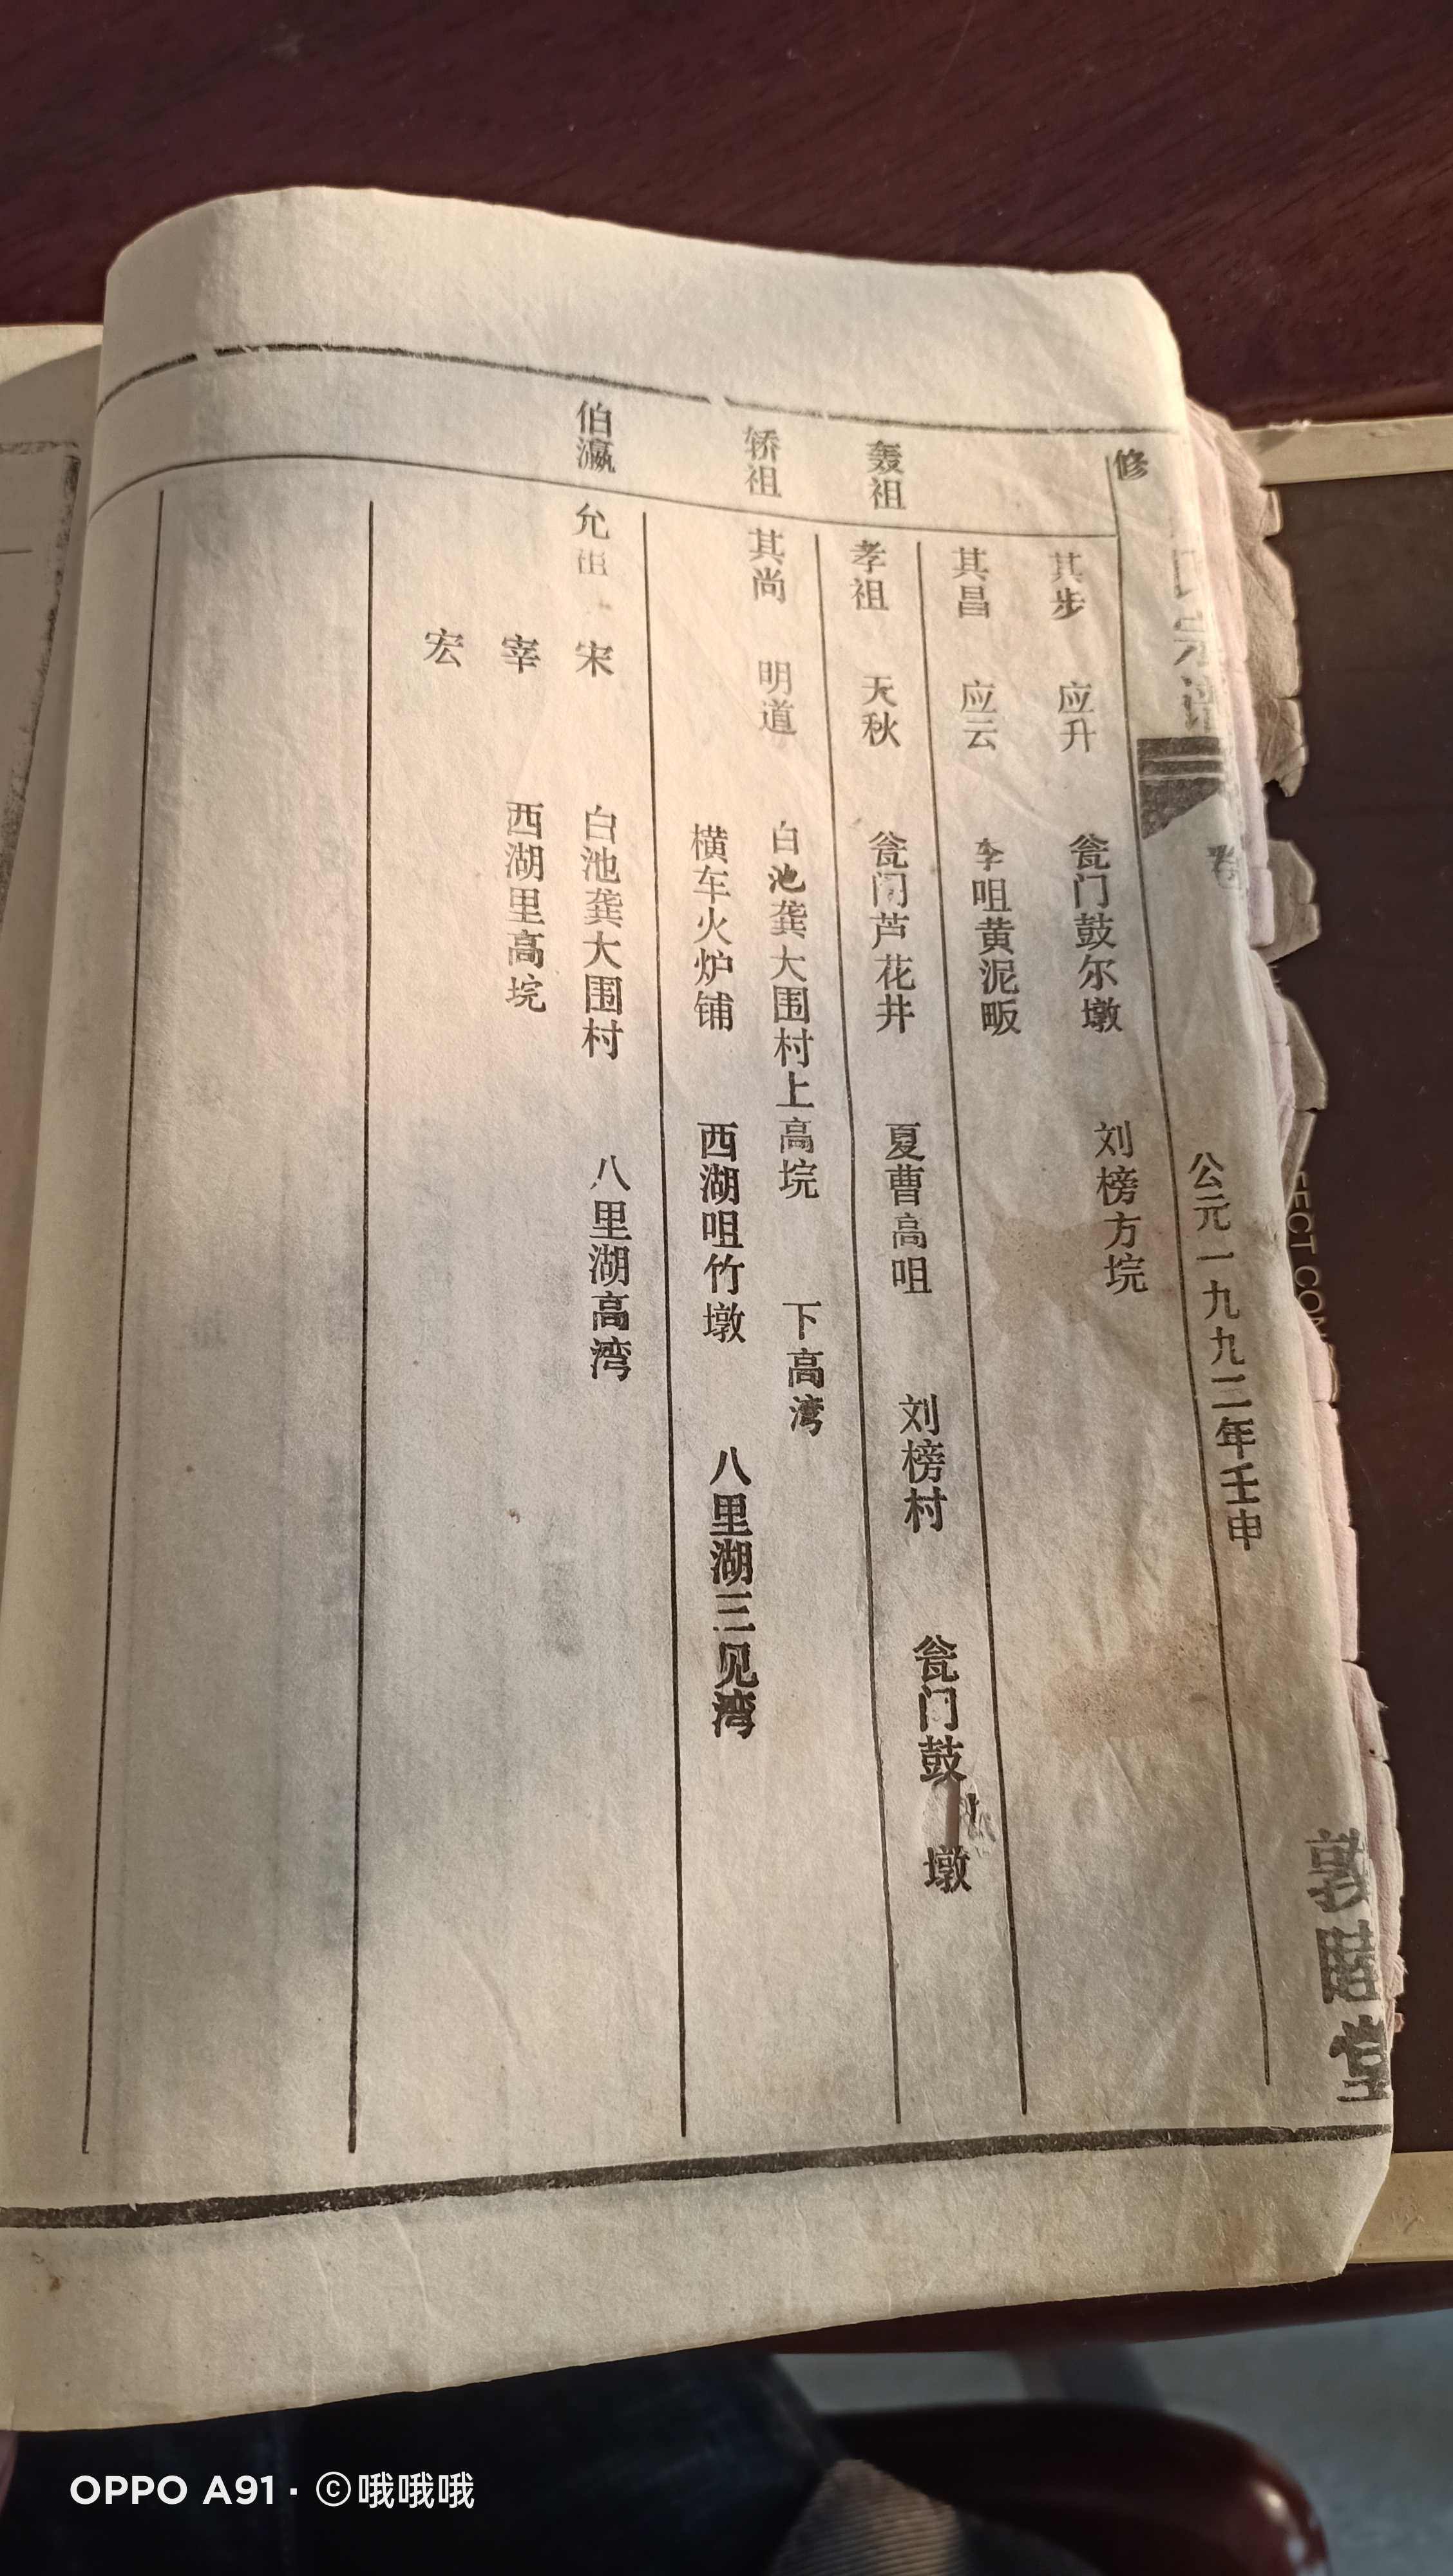 修
宗谱
卷
公元一九九二年壬申
敦睦堂
其步 应升 瓮门鼓尔墩 刘榜方垸
其昌 应云 李咀黄泥畈
轰祖 孝祖 天秋 瓮门芦花井 夏曹高咀 刘榜村 瓮门鼓 墩
轿祖 其尚 明道 白池龚大围村上高垸 下高湾
横车火炉铺 西湖咀竹墩 八里湖三见湾
伯瀛 允祖 宋 白池龚大围村 八里湖高湾
宰 西湖里高垸
宏
ECT CON
OPPO A91 · ©哦哦哦